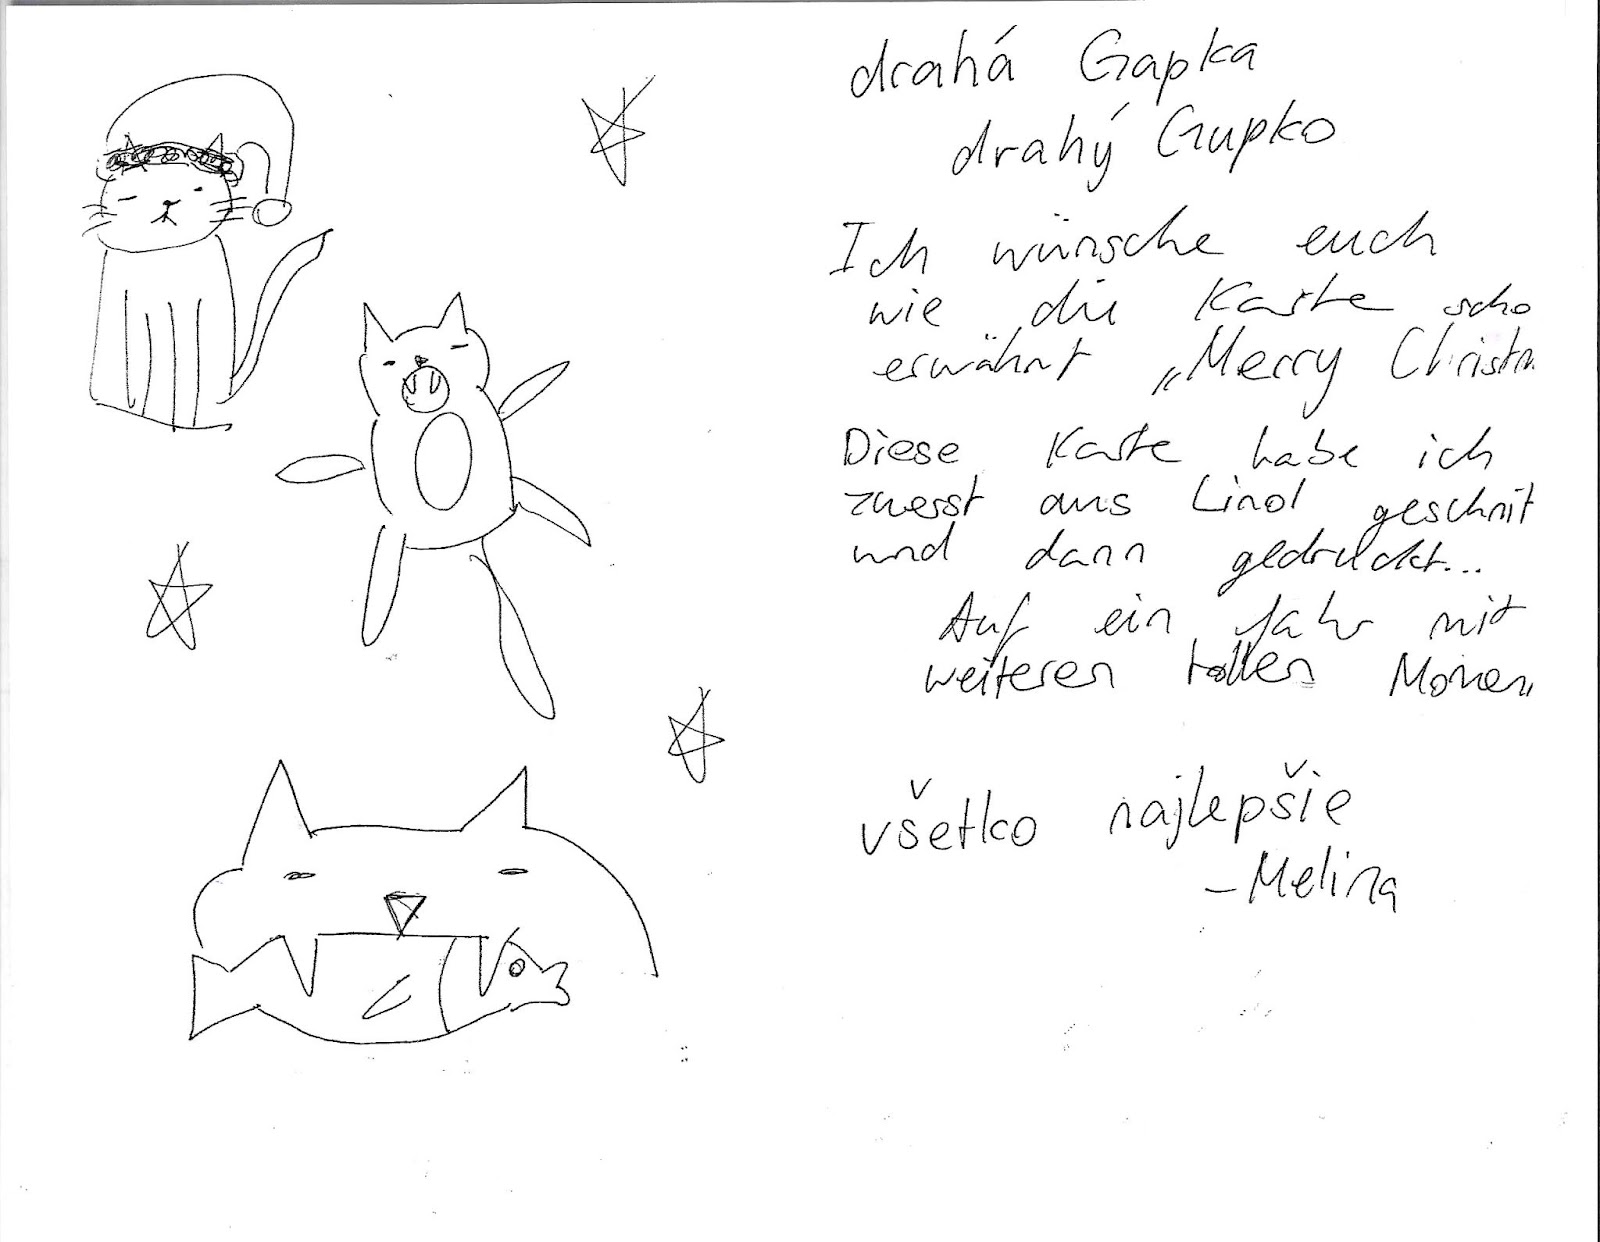 drahá Gapka
drahý Gupko
Ich wünsche euch
wie die Karte scho
erwähnt „Merry Christm
Diese Karte habe ich
zuerst aus Linol geschnit
und dann gedruckt...
Auf ein Jahr mit
weiteren tollen Momen
všetko najlepšie
-Melina